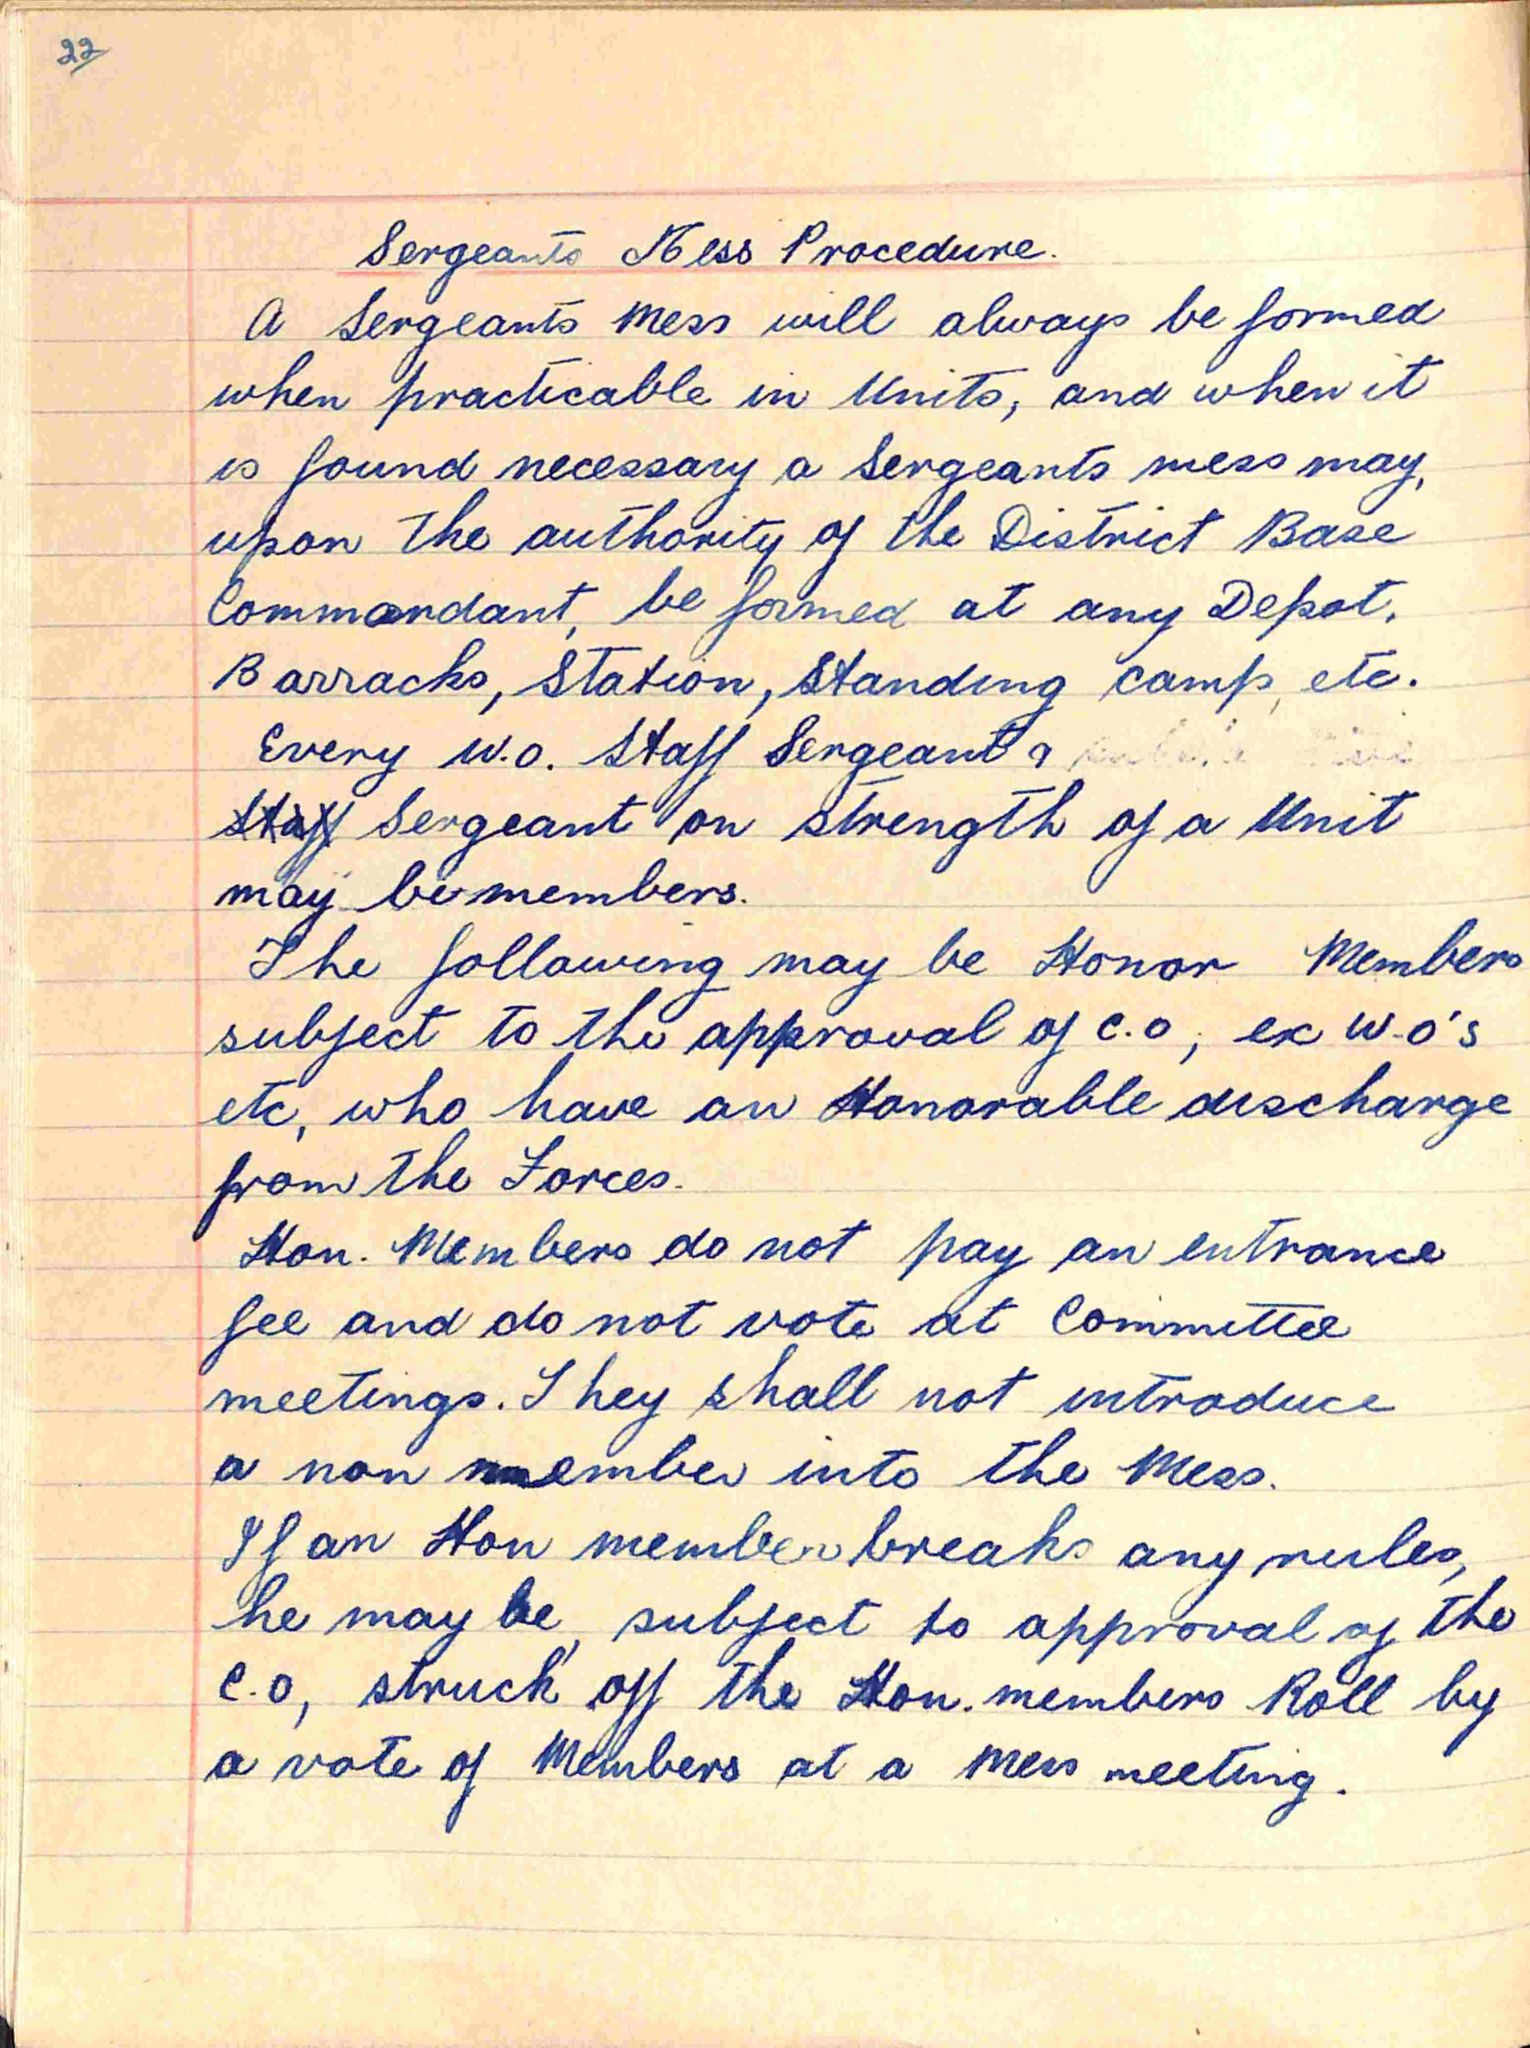 22
Sergeants Mess Procedure.
A Sergeants Mess will always be formed
when practicable in Units, and when it
is found necessary a Sergeants mess may,
upon the authority of the District Base
Commandant, be formed at any Depot,
Barracks, Station, Standing Camp, etc.
Every W.O. Staff Sergeant &
Staff Sergeant on strength of a Unit
may be members.
The following may be Honor Members
subject to the approval of C.O, ex W.O's
etc, who have an Honorable discharge
from the Forces.
Hon. Members do not pay an entrance
fee and do not vote at Committee
meetings. They shall not introduce
a non member into the Mess.
If an Hon member breaks any rules,
he may be, subject to approval of the
C.O, struck off the Hon. members Roll by
a vote of Members at a Mess meeting.